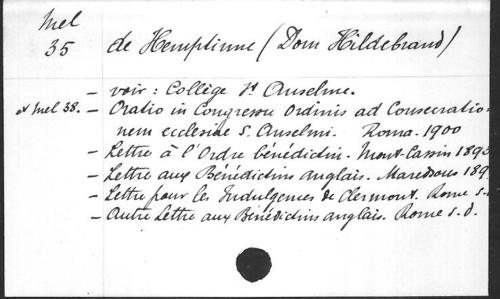 Mel
35 de Hemptinne (Dom Hildebrand)
- voir : Collège St Anselme.
et Mel 38. - Oratio in Congressu Ordinis ad Consecratio-
nem ecclesiae S. Anselmi. Roma. 1900
- Lettre à l'Ordre bénédictin. Mont-Cassin 1893
- Lettre aux Bénédictins anglais. Maredsous 189
- Lettre pour les Indulgences de Clermont. Rome s.d
- Autre Lettre aux Bénédictins anglais. Rome s.d.